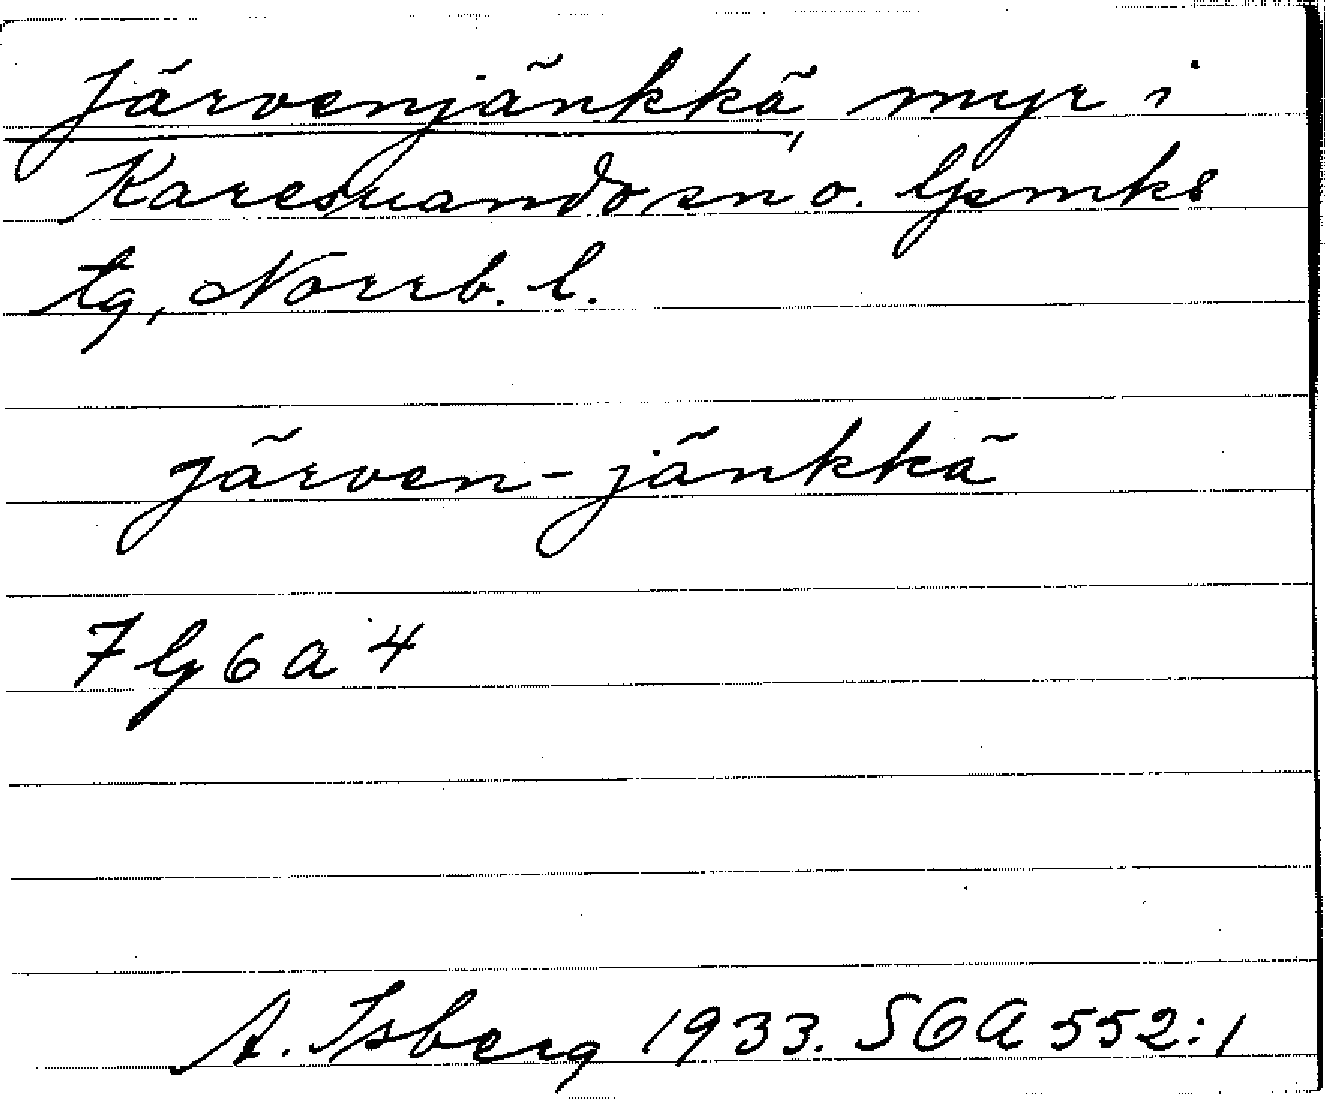 Järvenjänkkä, myr i
Karesuando sn o. lpmks
tg, Norrb. l.
järven-jänkkä
7 lg 6 a 4
A. Isberg 1933. SGA 552:1